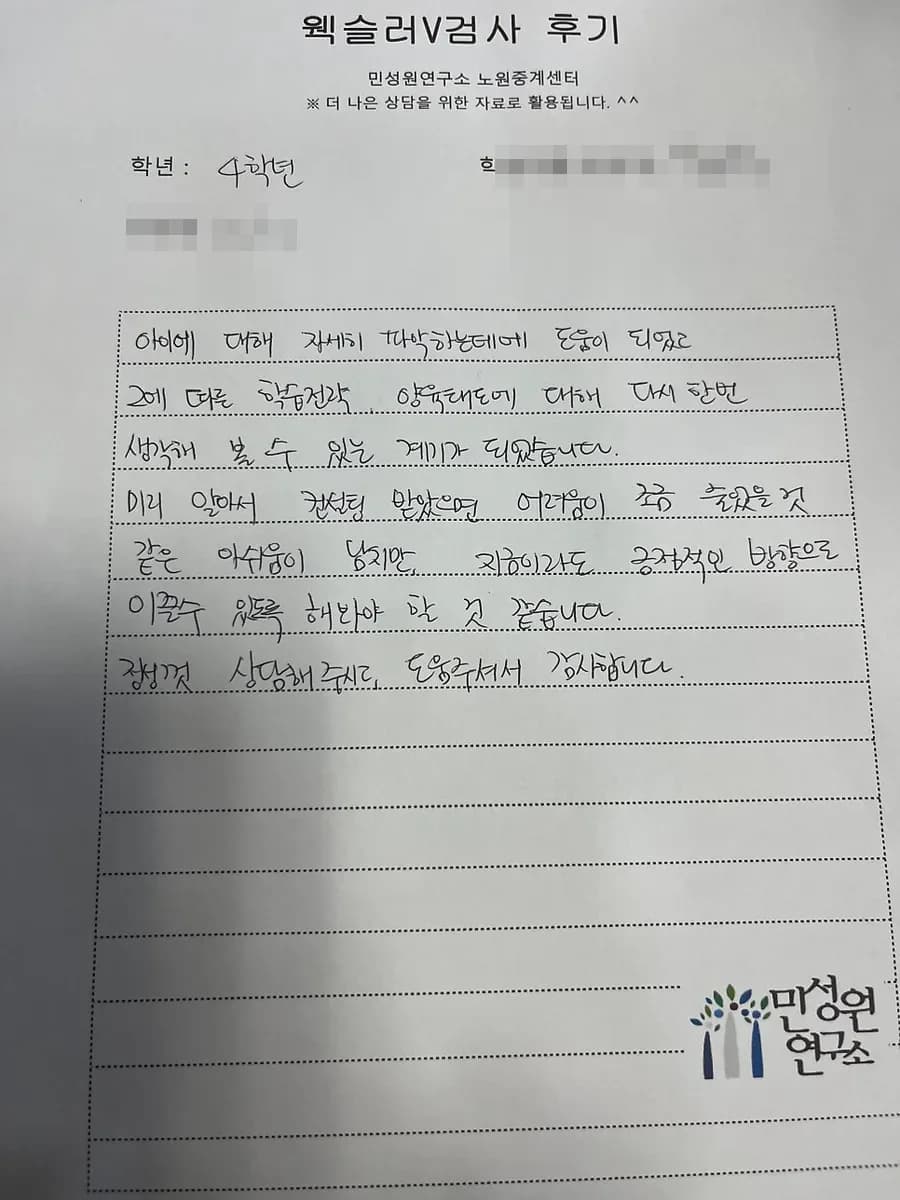 웩슬러V검사 후기
민성원연구소 노원중계센터
※ 더 나은 상담을 위한 자료로 활용됩니다. ^^
학년 : 4학년
학
아이에 대해 자세히 파악하는데에 도움이 되었고
그에 따른 학습전략, 양육태도에 대해 다시 한번
생각해 볼 수 있는 계기가 되었습니다.
미리 알아서 컨설팅 받았으면 어려움이 조금 줄었을 것
같은 아쉬움이 남지만, 지금이라도 긍정적인 방향으로
이끌수 있도록 해봐야 할 것 같습니다.
정성껏 상담해주시고, 도움주셔서 감사합니다.
민성원
연구소